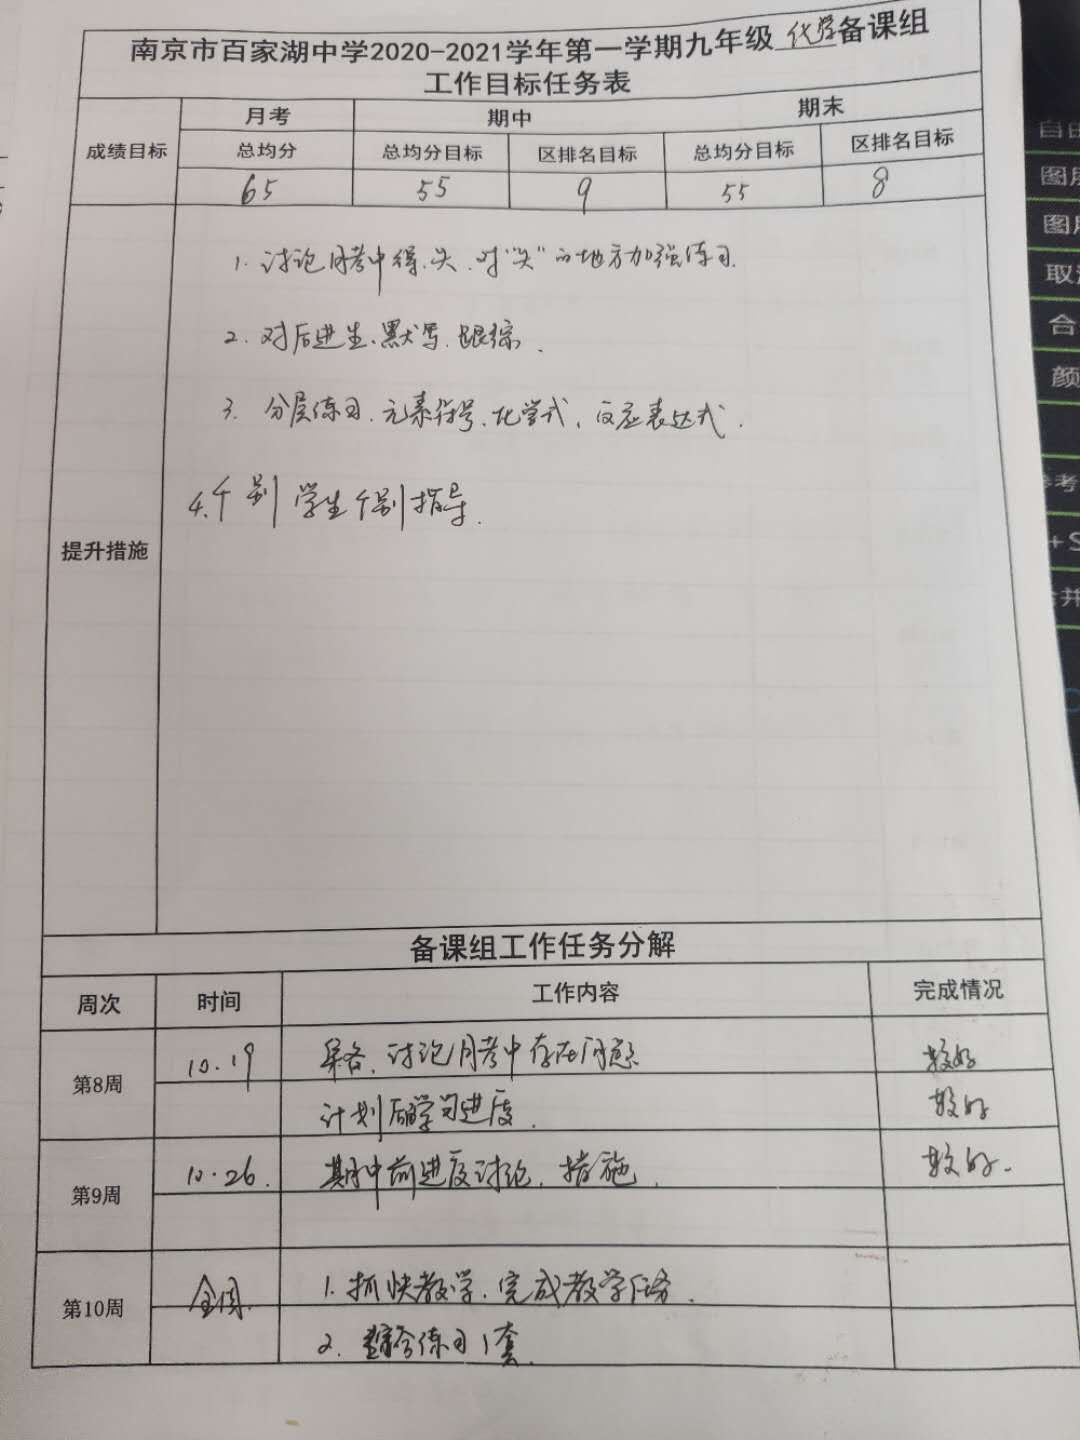 南京市百家湖中学2020-2021学年第一学期九年级化学备课组
工作目标任务表
成绩目标 月考 期中 期末
总均分 总均分目标 区排名目标 总均分目标 区排名目标
65 55 9 55 8
提升措施
1. 讨论月考中得、失、对“失”的地方加强练习.
2. 对后进生、默写、跟综.
3. 分层练习、元素符号、化学式、反应表达式.
4. 个别学生个别指导.
备课组工作任务分解
周次 时间 工作内容 完成情况
第8周 10.19 集备、讨论月考中存在问题 较好
计划后学习进度. 较好
第9周 10.26. 期中前进度讨论、措施. 较好.
第10周 全周. 1. 抓快教学、完成教学任务.
2. 综合练习1套.
自由
图层
图层
取消
合
颜
参考
+S
合并